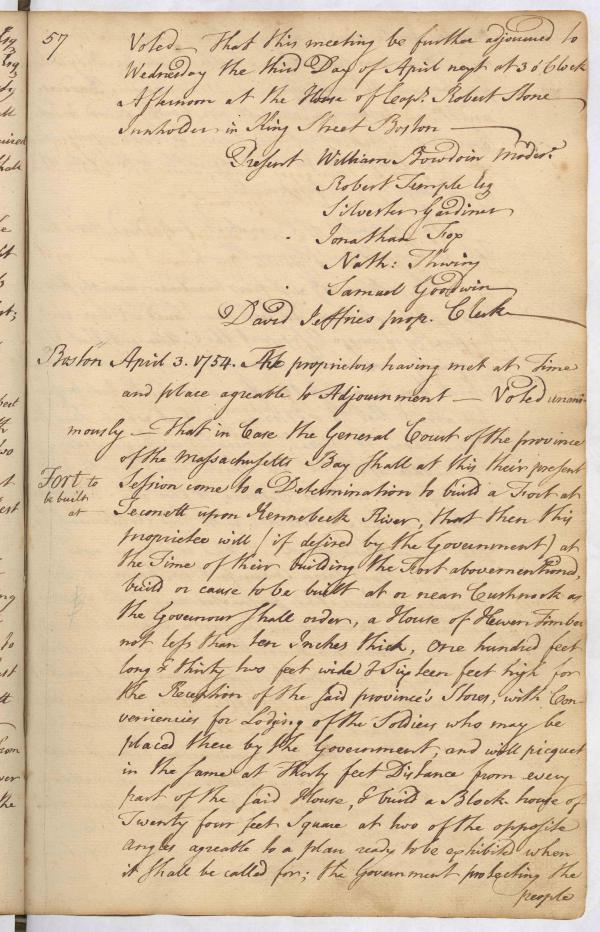 57
Voted — That this meeting be further adjourned to
Wednesday the third Day of April next at 3 o'Clock
Afternoon at the House of Capt. Robert Stone
Innholder in King Street Boston —
Present William Bowdoin Moder.
Robert Temple Esq
Silvester Gardiner
Jonathan Fox
Nath: Thwing
Samuel Goodwin
David Jeffries prop. Clerk
Boston April 3. 1754. The proprietors having met at Time
and place agreable to Adjournment — Voted unani-
mously — That in Case the General Court of the province
of the Massachusetts Bay Shall at this their present
Fort to
be built
at
Session come to a Determination to build a Fort at
Teconett upon Kennebeck River, that then this
Proprietee will (if desired by the Government) at
the Time of their building the Fort abovementioned,
build or cause to be built at or near Cushnock as
the Governour Shall order, a House of Hewen Timber
not less than ten Inches thick, one hundred feet
long & thirty two feet wide & Sixteen feet high for
the Reception of the said province's Stores, with Con-
veniencies for Lodging of the Soldiers who may be
placed there by the Government, and will picquet
in the same at thirty feet Distance from every
part of the said House, & build a Block house of
Twenty four feet Square at two of the opposite
angles agreable to a plan ready to be exhibited when
it shall be called for; the Government protecting the
people